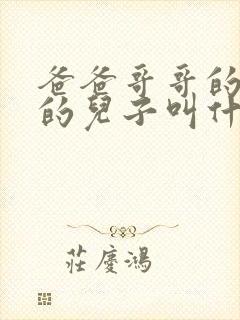 爸爸哥哥的
的兒子叫什
莊慶鴻